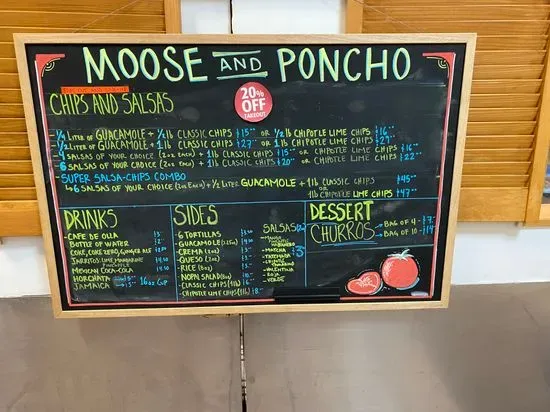 MOOSE AND PONCHO
20% OFF TAKEOUT
CHIPS AND SALSAS
-1/4 LITER OF GUACAMOLE + 1/2 lb CLASSIC CHIPS $15 OR 1/2 lb CHIPOTLE LIME CHIPS $16
-1/2 LITER OF GUACAMOLE + 1 lb CLASSIC CHIPS $27 OR 1 lb CHIPOTLE LIME CHIPS
4 SALSAS OF YOUR CHOICE (2oz EACH) + 1 lb CLASSIC CHIPS $15 OR CHIPOTLE LIME CHIPS $16
6 SALSAS OF YOUR CHOICE (2oz EACH) + 1 lb CLASSIC CHIPS $20 OR CHIPOTLE LIME CHIPS $22
-SUPER SALSA-CHIPS COMBO
6 SALSAS OF YOUR CHOICE (2oz EACH) + 1/2 LITER GUACAMOLE + 1 lb CLASSIC CHIPS $45
OR
1 lb CHIPOTLE LIME CHIPS $47
DRINKS
-CAFE DE OLLA
BOTTLE OF WATER
COKE, COKE ZERO, GINGER ALE
JARRITOS: LIME MANDARINE
MEXICAN COCA-COLA
HORCHATA
JAMAICA 16oz CUP
SIDES
-6 TORTILLAS
-GUACAMOLE
-CREMA (2oz)
-QUESO (2oz)
-RICE (8oz)
-NOPAL SALAD (8oz)
-CLASSIC CHIPS (1lb)
-CHIPOTLE LIME CHIPS (1lb)
SALSAS
-MANGO HABANERO
-MACHA
-TATEMADA
-VALENTINA
-ROJA
-VERDE
DESSERT
CHURROS
BAG OF 4 - $7
BAG OF 10 -